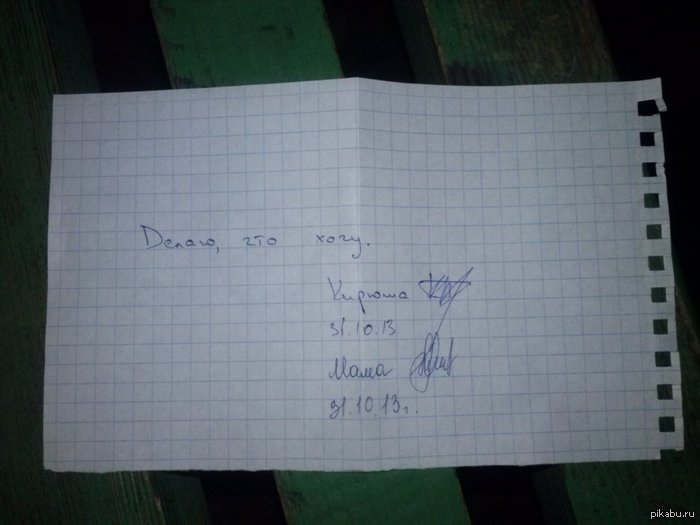 Делаю, что хочу.
Кирюша
31.10.13
Мама
31.10.13г.
pikabu.ru